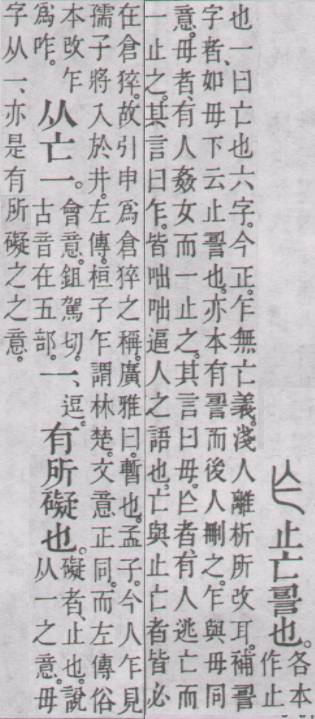 止亡䛐也。各本
作止
也一曰亡也六字。今正。乍無亡義。淺人離析所改耳。補䛐
字者、如毋下云止䛐也、亦本有䛐而後人刪之。乍與毋同
意。毋者、有人姦女而一止之。其言曰毋。乍者、有人逃亡而
一止之。其言曰乍。皆咄咄逼人之語也。亡與止亡者皆必
在倉猝。故引申爲倉猝之稱。廣雅曰。暫也。孟子。今人乍見
孺子將入於井。左傳。桓子乍謂林楚。文意正同。而左傳俗
本改乍
爲咋。
从亡一。
會意。鉏駕切。
古音在五部。
一、逗。有所礙也。
礙者、止也。說
从一之意。毋
字从一、亦是有所礙之之意。